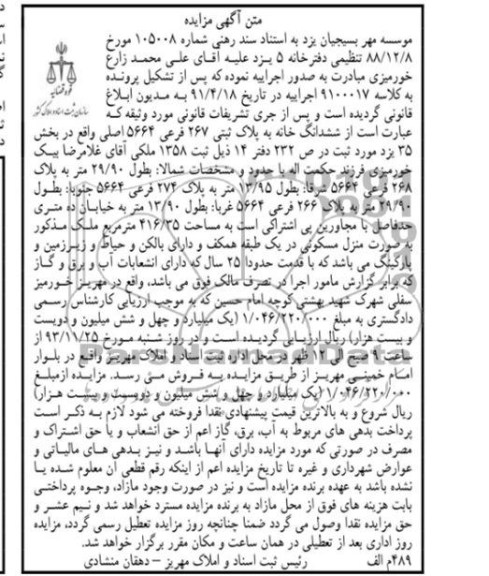 متن آگهی مزایده
موسسه مهر بسیجیان یزد به استناد سند رهنی شماره ۱۰۵۰۰۸ مورخ
۸۸/۱۲/۸ تنظیمی دفترخانه ۵ یزد علیه آقای علی محمد زارع
خورمیزی مبادرت به صدور اجراییه نموده که پس از تشکیل پرونده
به کلاسه ۹۱۰۰۰۱۷ اجراییه در تاریخ ۹۱/۴/۱۸ به مدیون ابلاغ
قانونی گردیده است و پس از جری تشریفات قانونی مورد وثیقه که
عبارت است از ششدانگ خانه به پلاک ثبتی ۲۶۷ فرعی ۵۶۶۴ اصلی واقع در بخش
۳۵ یزد مورد ثبت در ص ۲۳۲ دفتر ۱۴ ذیل ثبت ۱۳۵۸ ملکی آقای غلامرضا بیک
خورمیزی فرزند حکمت اله با حدود و مشخصات شمالا: بطول ۲۹/۹۰ متر به پلاک
۲۶۸ فرعی ۵۶۶۴ شرقا: بطول ۱۳/۹۵ متر به پلاک ۲۷۴ فرعی ۵۶۶۴ جنوبا: بطول
۲۹/۹۰ متر به پلاک ۲۶۶ فرعی ۵۶۶۴ غربا: بطول ۱۳/۹۰ متر به خیابان ده متری
حدفاصل با مجاورین پی اشتراکی است به مساحت ۴۱۶/۳۵ مترمربع ملک مذکور
به صورت منزل مسکونی در یک طبقه همکف و دارای بالکن و حیاط و زیرزمین و
پارکینگ می باشد که با قدمت حدودا ۲۵ سال که دارای انشعابات آب و برق و گاز
که برابر گزارش مامور اجرا در تصرف مالک فوق می باشد، واقع در مهریز خورمیز
سفلی شهرک شهید بهشتی کوچه امام حسین که به موجب ارزیابی کارشناس رسمی
دادگستری به مبلغ ۱/۰۴۶/۲۲۰/۰۰۰ (یک میلیارد و چهل و شش میلیون و دویست
و بیست هزار) ریال ارزیابی گردیده است و در روز شنبه مورخ ۹۳/۱۱/۲۵ از
ساعت ۹ صبح الی ۱۲ ظهر در محل اداره ثبت اسناد و املاک مهریز واقع در بلوار
امام خمینی مهریز از طریق مزایده به فروش می رسد. مزایده ازمبلغ
۱/۰۴۶/۲۲۰/۰۰۰ (یک میلیارد و چهل و شش میلیون و دویست و بیست هزار)
ریال شروع و به بالاترین قیمت پیشنهادی نقدا فروخته می شود لازم به ذکر است
پرداخت بدهی های مربوط به آب، برق، گاز اعم از حق انشعاب و یا حق اشتراک و
مصرف در صورتی که مورد مزایده دارای آنها باشد و نیز بدهی های مالیاتی و
عوارض شهرداری و غیره تا تاریخ مزایده اعم از اینکه رقم قطعی آن معلوم شده یا
نشده باشد به عهده برنده مزایده است و نیز در صورت وجود مازاد، وجوه پرداختی
بابت هزینه های فوق از محل مازاد به برنده مزایده مسترد خواهد شد و نیم عشر و
حق مزایده نقدا وصول می گردد ضمنا چنانچه روز مزایده تعطیل رسمی گردد، مزایده
روز اداری بعد از تعطیلی در همان ساعت و مکان مقرر برگزار خواهد شد.
۴۸۹م الف رئیس ثبت اسناد و املاک مهریز – دهقان منشادی